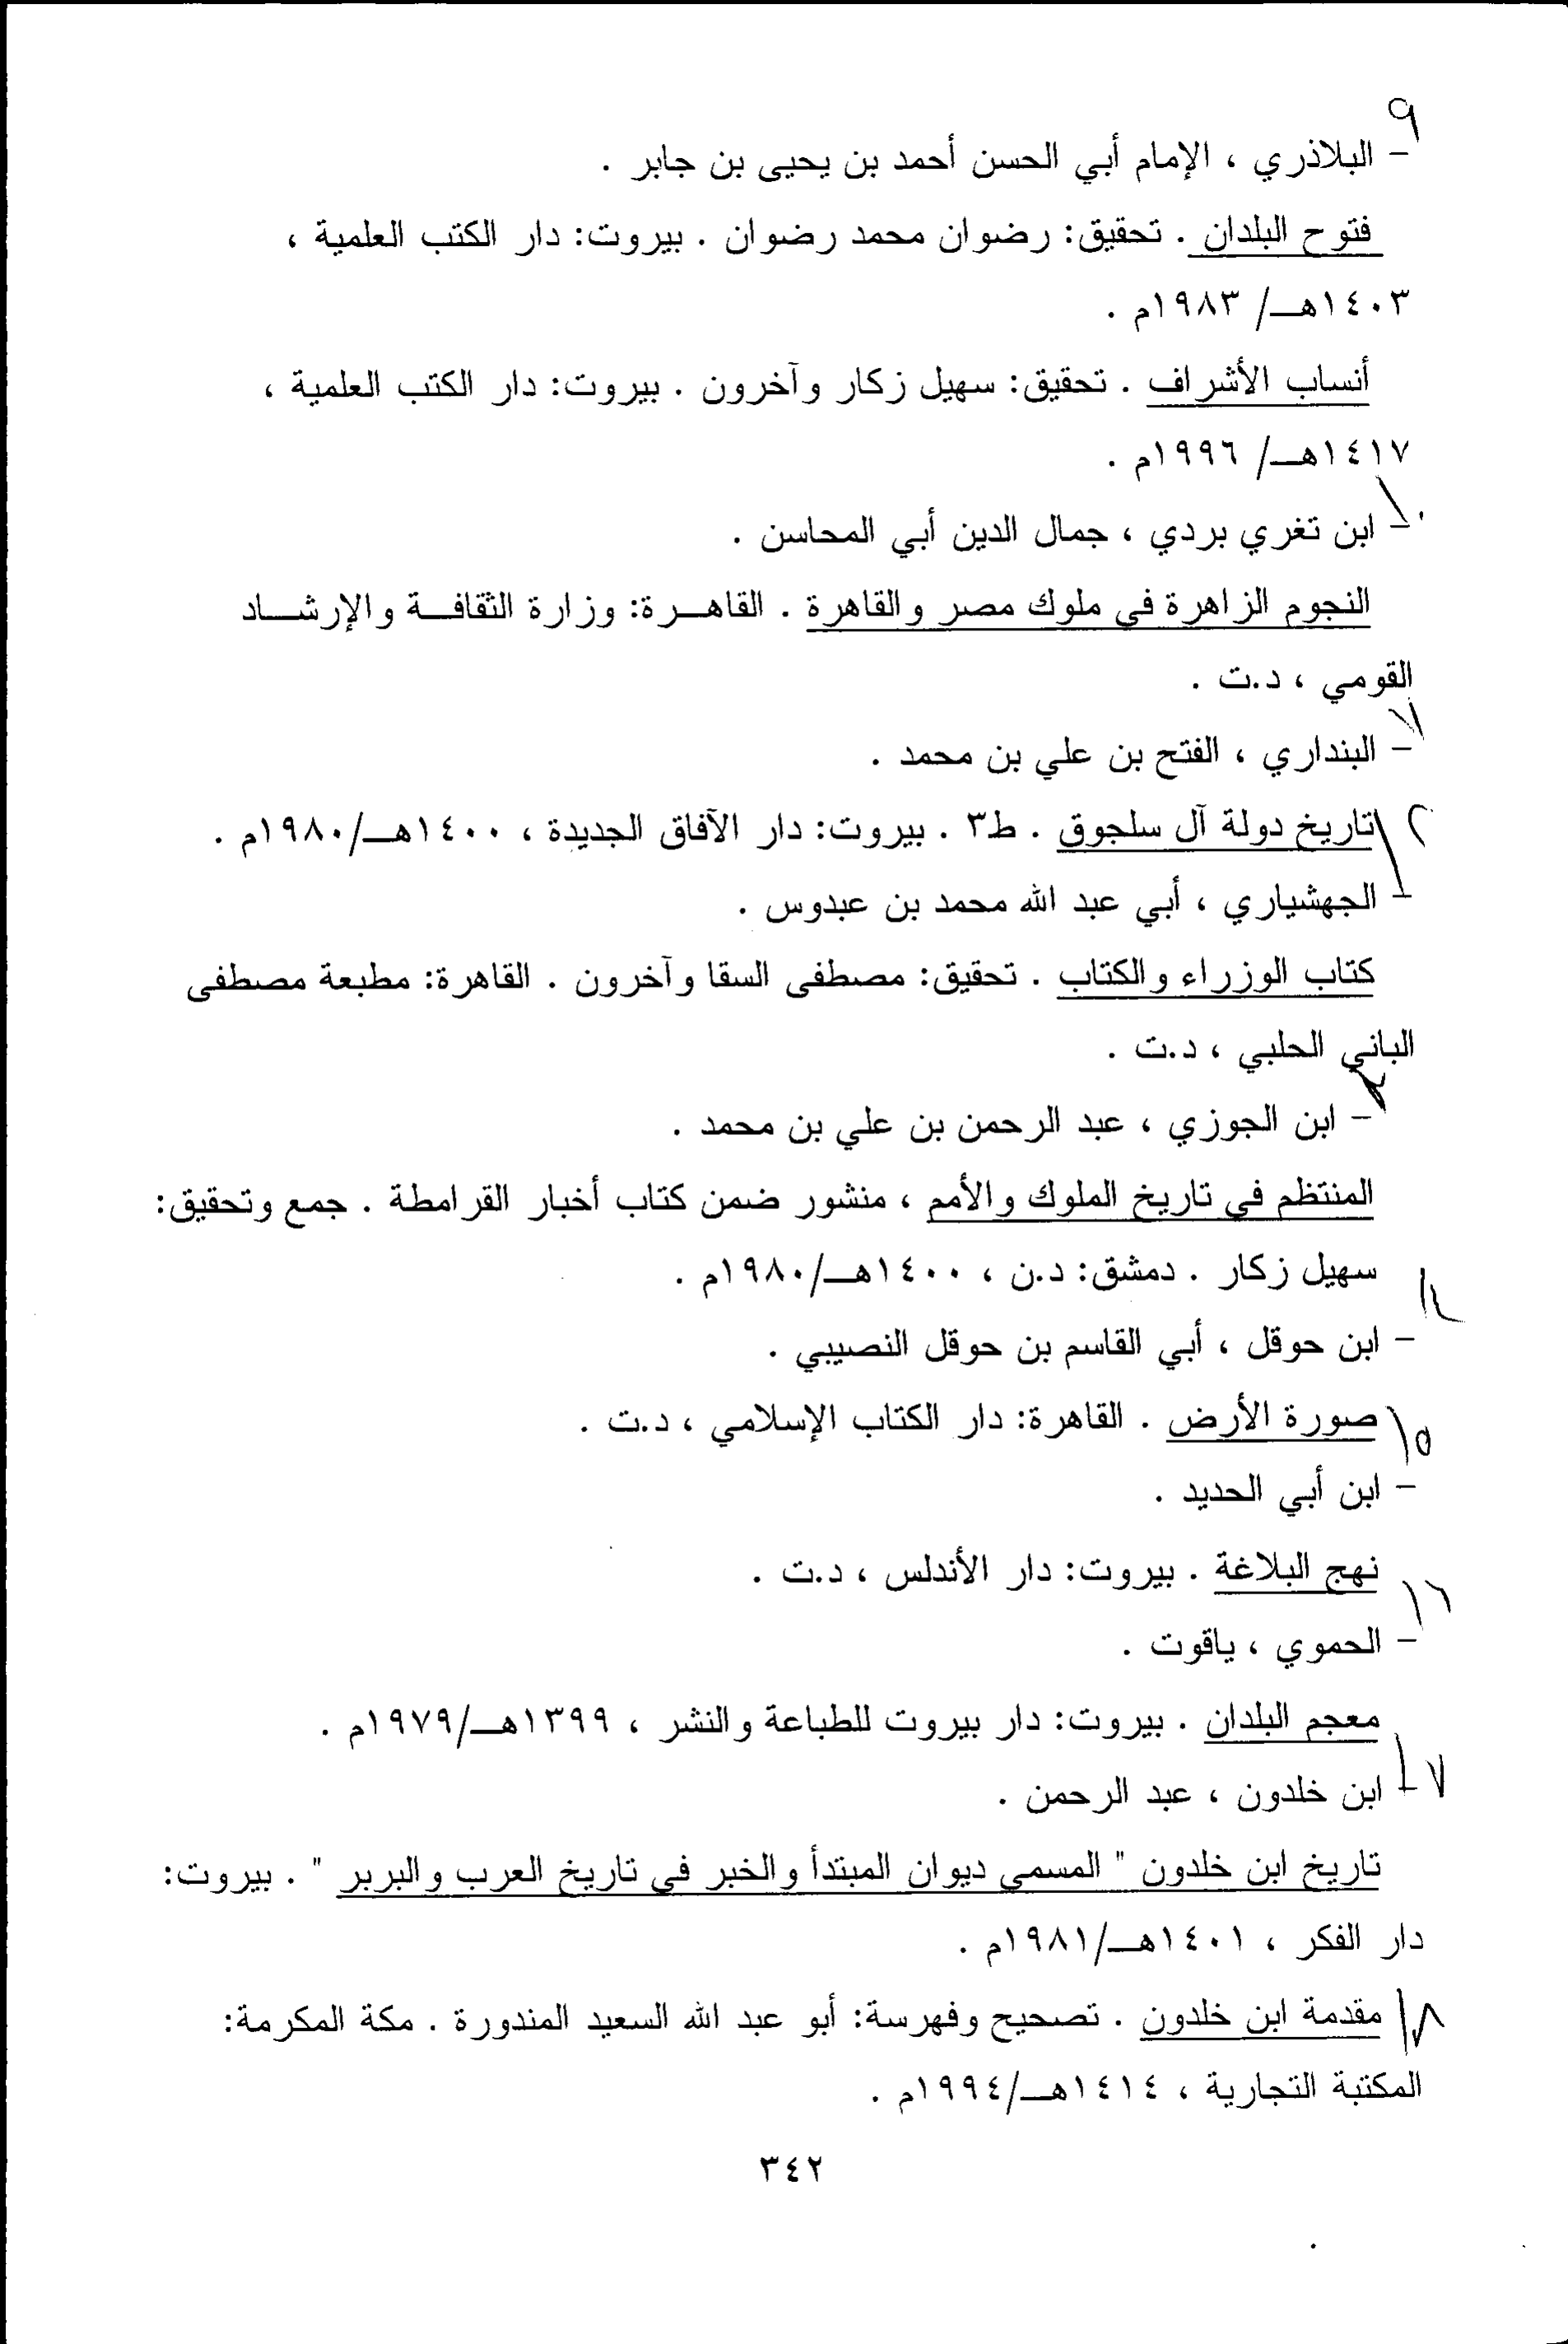 ٩
- البلاذري ، الإمام أبي الحسن أحمد بن يحيى بن جابر .
فتوح البلدان . تحقيق: رضوان محمد رضوان . بيروت: دار الكتب العلمية ،
١٤٠٣هـ/ ١٩٨٣م .
أنساب الأشراف . تحقيق: سهيل زكار وآخرون . بيروت: دار الكتب العلمية ،
١٤١٧هـ/ ١٩٩٦م .
١٠
- ابن تغري بردي ، جمال الدين أبي المحاسن .
النجوم الزاهرة في ملوك مصر والقاهرة . القاهرة: وزارة الثقافة والإرشاد
القومي ، د.ت .
- البنداري ، الفتح بن علي بن محمد .
تاريخ دولة آل سلجوق . ط٣ . بيروت: دار الآفاق الجديدة ، ١٤٠٠هـ/١٩٨٠م .
١٢
- الجهشياري ، أبي عبد الله محمد بن عبدوس .
كتاب الوزراء والكتاب . تحقيق: مصطفى السقا وآخرون . القاهرة: مطبعة مصطفى
الباني الحلبي ، د.ت .
- ابن الجوزي ، عبد الرحمن بن علي بن محمد .
المنتظم في تاريخ الملوك والأمم ، منشور ضمن كتاب أخبار القرامطة . جمع وتحقيق:
سهيل زكار . دمشق: د.ن ، ١٤٠٠هـ/١٩٨٠م .
- ابن حوقل ، أبي القاسم بن حوقل النصيبي .
صورة الأرض . القاهرة: دار الكتاب الإسلامي ، د.ت .
١٥
- ابن أبي الحديد .
نهج البلاغة . بيروت: دار الأندلس ، د.ت .
١٦
- الحموي ، ياقوت .
معجم البلدان . بيروت: دار بيروت للطباعة والنشر ، ١٣٩٩هـ/١٩٧٩م .
١٧
- ابن خلدون ، عبد الرحمن .
تاريخ ابن خلدون " المسمى ديوان المبتدأ والخبر في تاريخ العرب والبربر " . بيروت:
دار الفكر ، ١٤٠١هـ/١٩٨١م .
١٨
مقدمة ابن خلدون . تصحيح وفهرسة: أبو عبد الله السعيد المندورة . مكة المكرمة:
المكتبة التجارية ، ١٤١٤هـ/١٩٩٤م .
٣٤٢